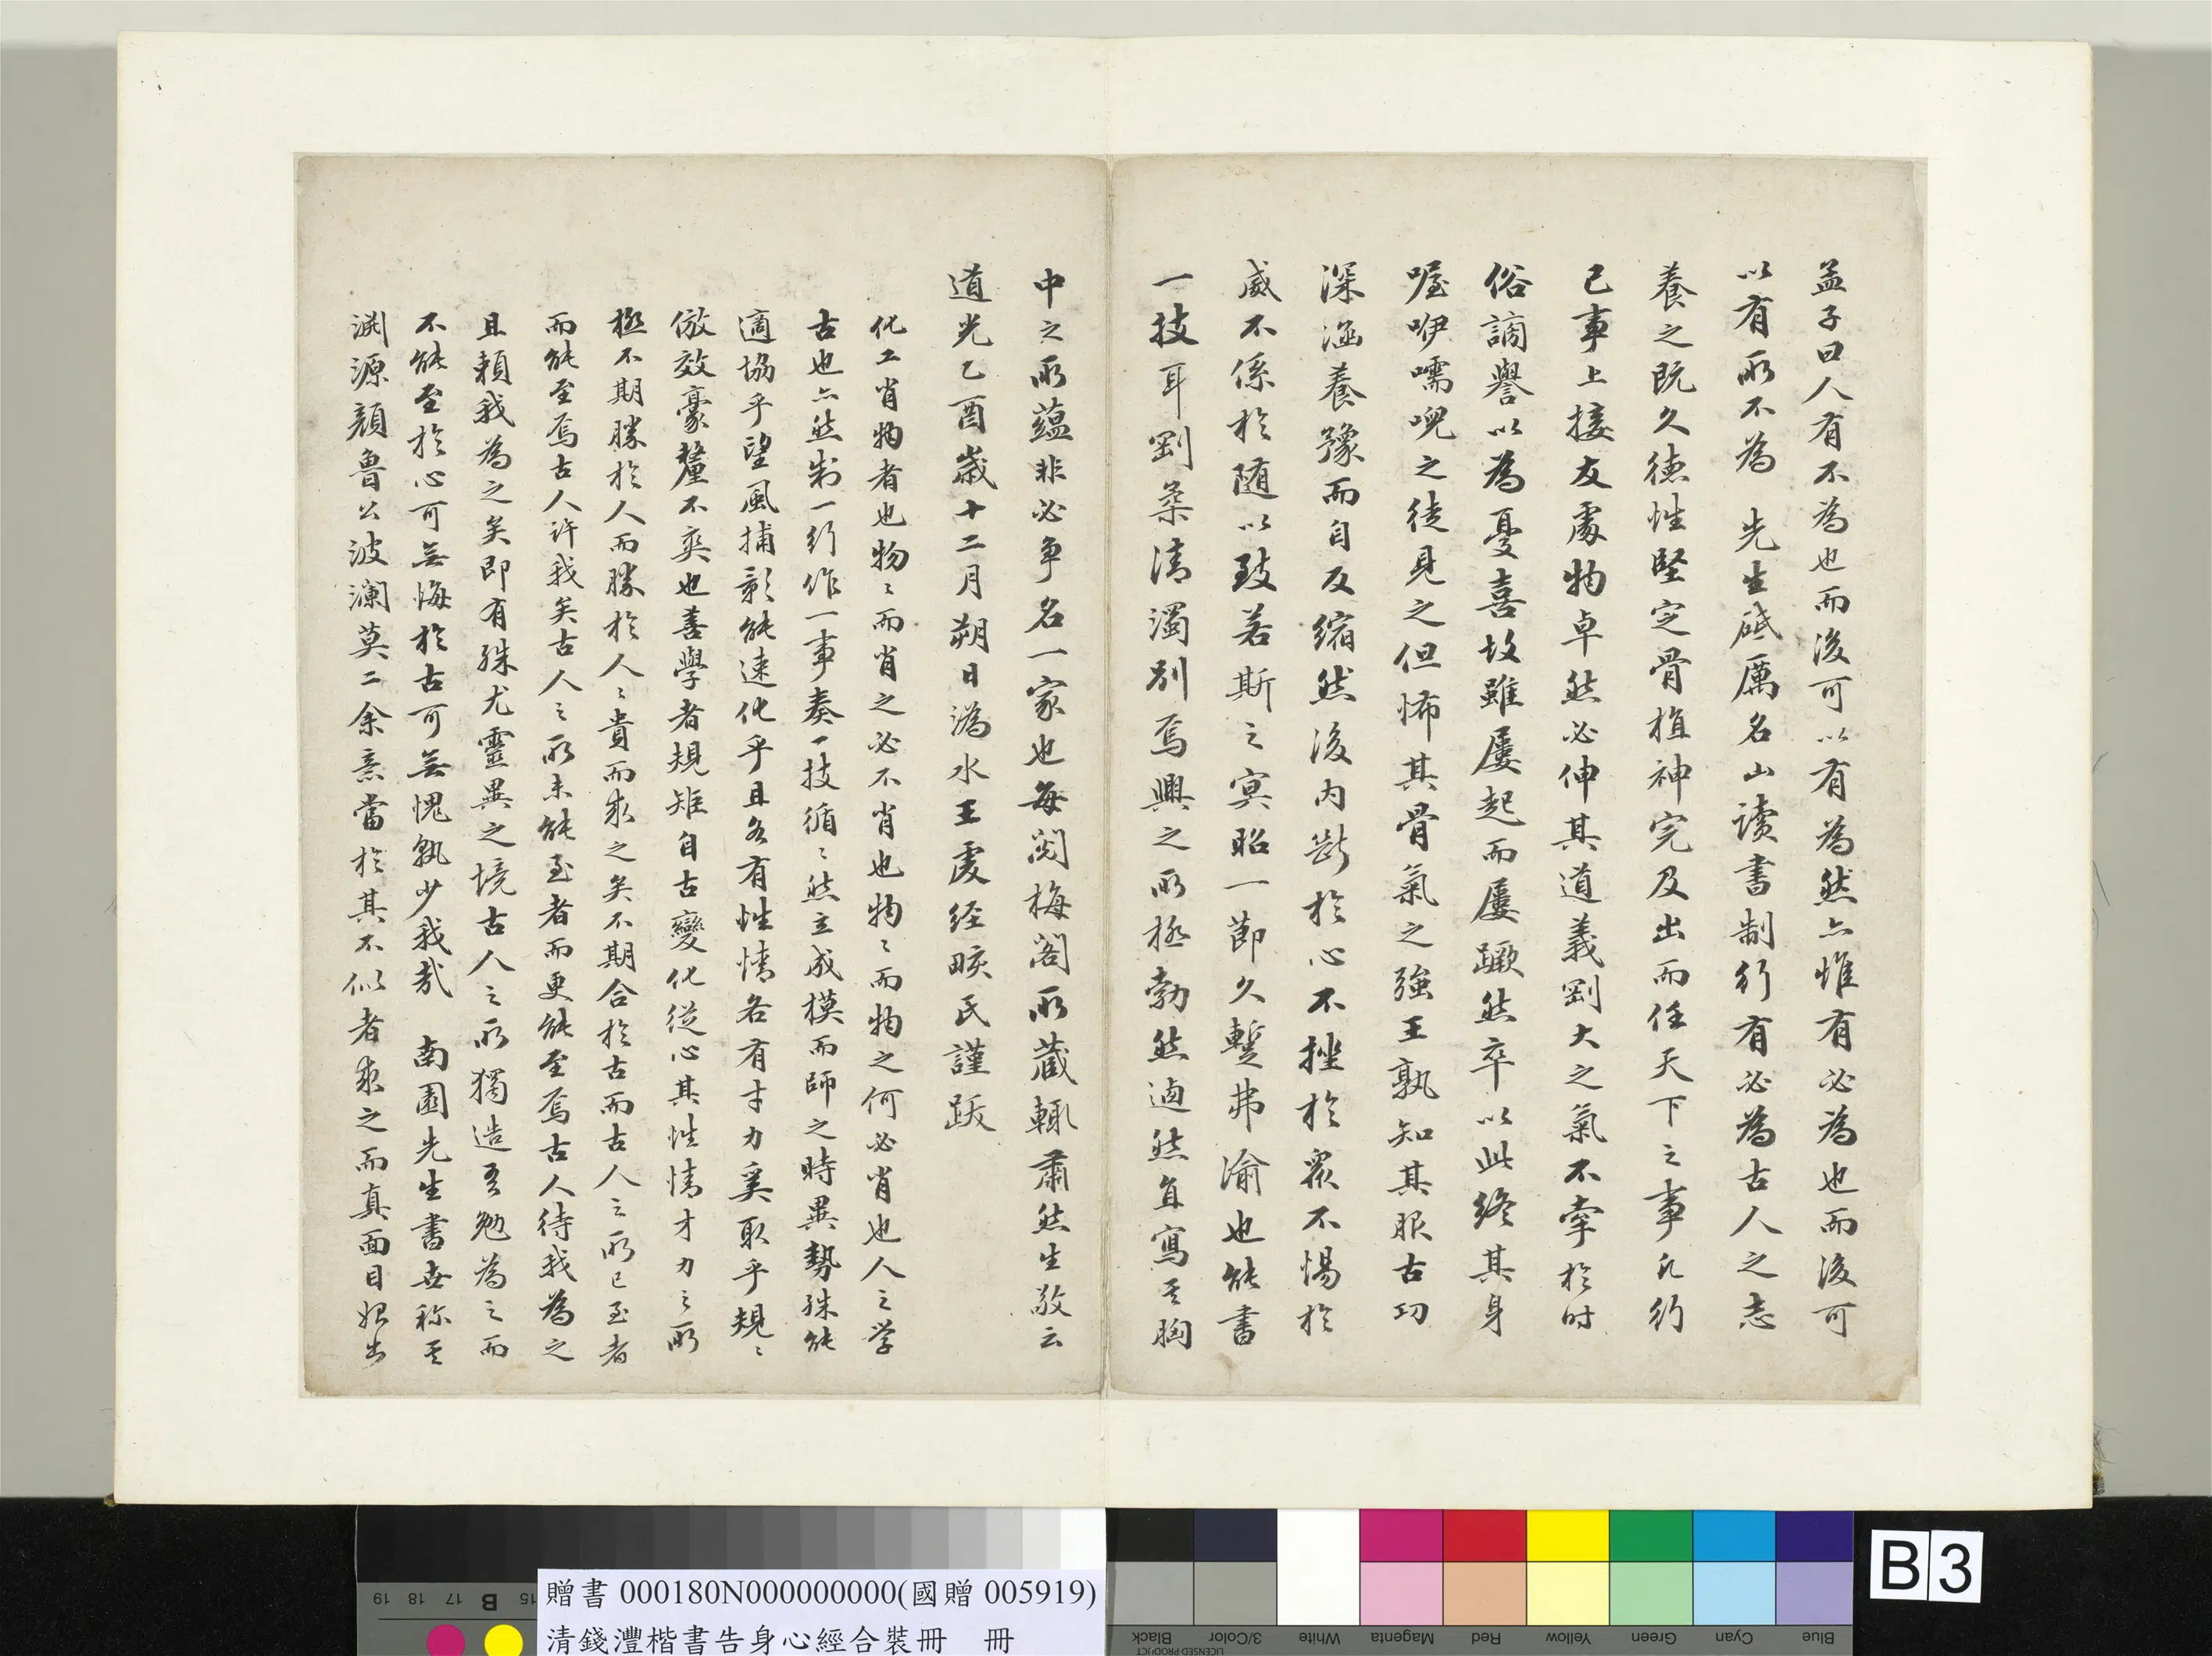 孟子曰人有不為也而後可以有為然亦惟有必為也而後可
以有所不為　先生砥厲名山讀書制行有必為古人之志
養之既久德性堅定骨植神完及出而任天下之事凡行
己事上接友處物卓然必伸其道義剛大之氣不牽於時
俗謫譽以為憂喜故雖屢起而屢蹶然卒以此終其身
喔咿嚅唲之徒見之但怖其骨氣之強王孰知其服古功
深涵養豫而自反縮然後內斷於心不挫於眾不惕於
威不係於隨以致若斯之冥昭一節久暫弗渝也能書
一技耳剛柔清濁別焉興之所極勃然迺然直寫其胸
中之所蘊非必爭名一家也每閱梅閣所藏輒肅然生敬云
道光乙酉歲十二月朔日溈水王虔經畯民謹跋
化工肖物者也物〻而肖之必不肖也物〻而物之何必肖也人之學
古也亦然制一行作一事奏一技循〻然立成模而師之時異勢殊能
適協乎望風捕影能速化乎且各有性情各有才力奚取乎規〻
倣效豪釐不爽也善學者規矩自古變化從心其性情才力之所
極不期勝於人而勝於人〻貴而求之矣不期合於古而古人之所已至者
而能至焉古人許我矣古人之所未能至者而更能至焉古人待我為之
且賴我為之矣即有殊尤靈異之境古人之所獨造吾勉為之而
不能至於心可無悔於古可無愧孰少我哉　南園先生書世稱其
淵源顏魯公波瀾莫二余意當於其不似者求之而真面目始出
贈書 000180N000000000(國贈 005919)
清錢灃楷書告身心經合裝冊　冊
B3
19 18 17 B 15
Black 3/Color White Magenta Red Yellow Green Cyan Blue
LICENSED PRODUCT